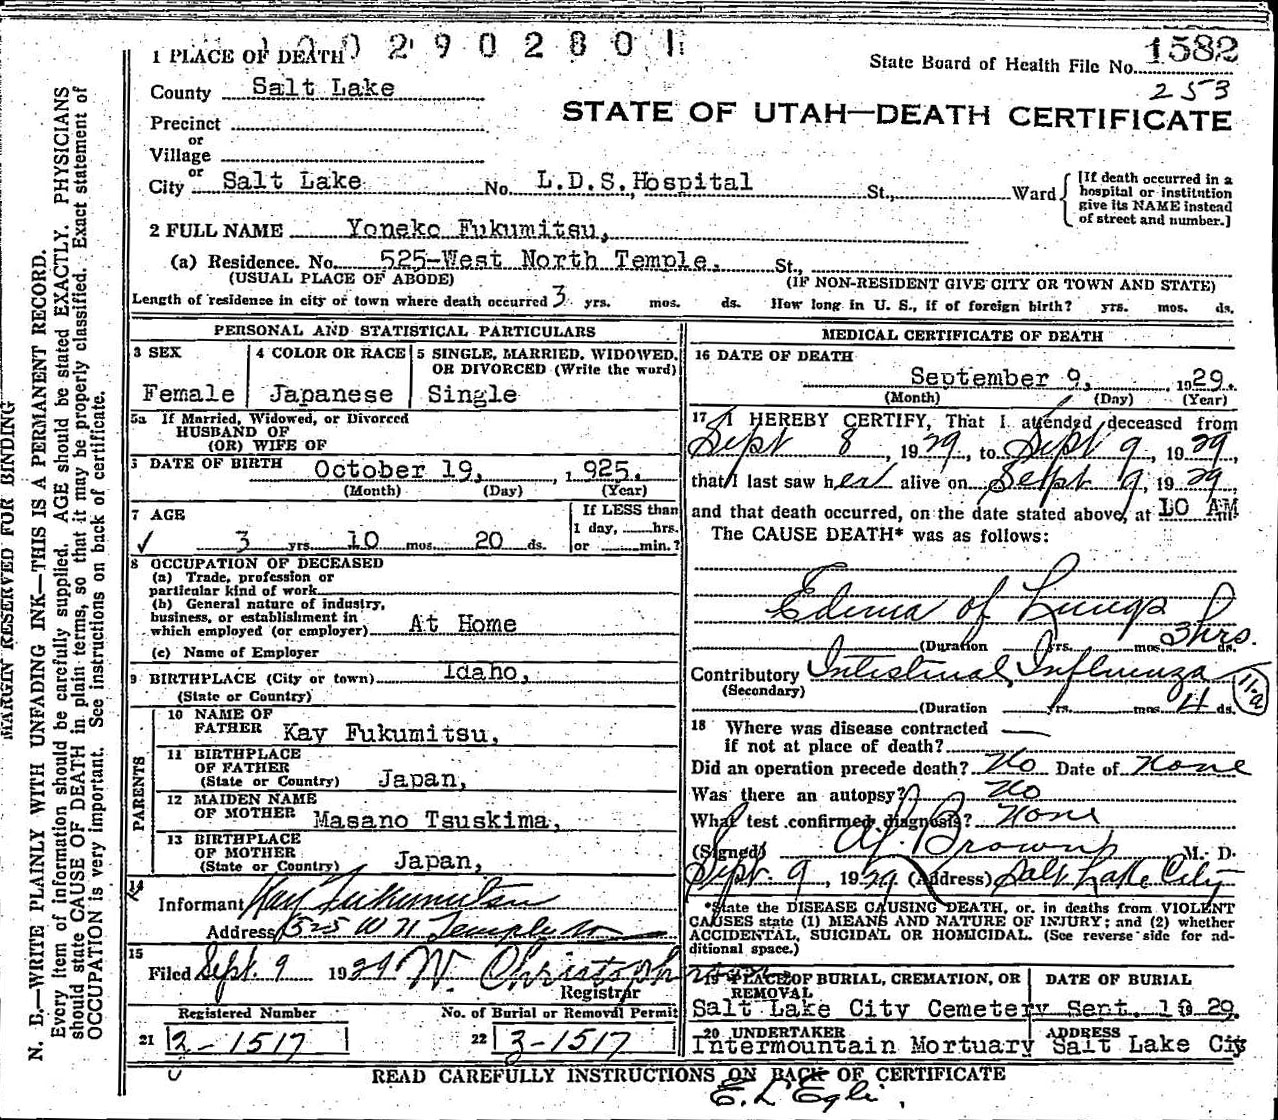 1002902801
1 PLACE OF DEATH
State Board of Health File No. 1582
253
County Salt Lake
STATE OF UTAH—DEATH CERTIFICATE
Precinct
or
Village
or
City Salt Lake No. L.D.S. Hospital St., Ward
[If death occurred in a
hospital or institution
give its NAME instead
of street and number.]
2 FULL NAME Yoneko Fukumitsu,
(a) Residence. No. 525-West North Temple, St.,
(USUAL PLACE OF ABODE) (IF NON-RESIDENT GIVE CITY OR TOWN AND STATE)
Length of residence in city or town where death occurred 3 yrs. mos. ds. How long in U. S., if of foreign birth? yrs. mos. ds.
PERSONAL AND STATISTICAL PARTICULARS
3 SEX
Female
4 COLOR OR RACE
Japanese
5 SINGLE, MARRIED, WIDOWED,
OR DIVORCED (Write the word)
Single
5a If Married, Widowed, or Divorced
HUSBAND OF
(OR) WIFE OF
DATE OF BIRTH October 19, 1925.
(Month) (Day) (Year)
7 AGE
3 yrs. 10 mos. 20 ds.
If LESS than
1 day, hrs.
or min.?
8 OCCUPATION OF DECEASED
(a) Trade, profession or
particular kind of work
(b) General nature of industry,
business, or establishment in
which employed (or employer) At Home
(c) Name of Employer
9 BIRTHPLACE (City or town) Idaho,
(State or Country)
PARENTS
10 NAME OF
FATHER Kay Fukumitsu,
11 BIRTHPLACE
OF FATHER
(State or Country) Japan,
12 MAIDEN NAME
OF MOTHER Masano Tsuskima,
13 BIRTHPLACE
OF MOTHER
(State or Country) Japan,
14
Informant Kay Fukumitsu
Address 525 W N Temple
15
Filed Sept. 9 1929 W. Christoph
Registrar
Registered Number
21 2-1517
No. of Burial or Removal Permit
22 3-1517
MEDICAL CERTIFICATE OF DEATH
16 DATE OF DEATH
September 9, 1929.
(Month) (Day) (Year)
17 I HEREBY CERTIFY, That I attended deceased from
Sept 8, 1929, to Sept 9, 1929,
that I last saw her alive on Sept 9, 1929,
and that death occurred, on the date stated above, at 10 AM
The CAUSE DEATH* was as follows:
Edema of Lungs
3 hrs.
(Duration yrs. mos. ds.
Contributory Intestinal Influenza
(Secondary)
(Duration yrs. mos. 4 ds.
11-a
18 Where was disease contracted
if not at place of death?
Did an operation precede death? No Date of None
Was there an autopsy? No
What test confirmed diagnosis? None
(Signed) Brown M. D.
Sept. 9, 1929 (Address) Salt Lake City
*State the DISEASE CAUSING DEATH, or, in deaths from VIOLENT
CAUSES state (1) MEANS AND NATURE OF INJURY; and (2) whether
ACCIDENTAL, SUICIDAL OR HOMICIDAL. (See reverse side for ad-
ditional space.)
19 PLACE OF BURIAL, CREMATION, OR
REMOVAL
Salt Lake City Cemetery
DATE OF BURIAL
Sept. 1929.
20 UNDERTAKER
Intermountain Mortuary
ADDRESS
Salt Lake City
READ CAREFULLY INSTRUCTIONS ON BACK OF CERTIFICATE
E. L Egli.
MARGIN RESERVED FOR BINDING
N. B.—WRITE PLAINLY WITH UNFADING INK—THIS IS A PERMANENT RECORD.
Every item of information should be carefully supplied. AGE should be stated EXACTLY. PHYSICIANS
should state CAUSE OF DEATH in plain terms, so that it may be properly classified. Exact statement of
OCCUPATION is very important. See instructions on back of certificate.